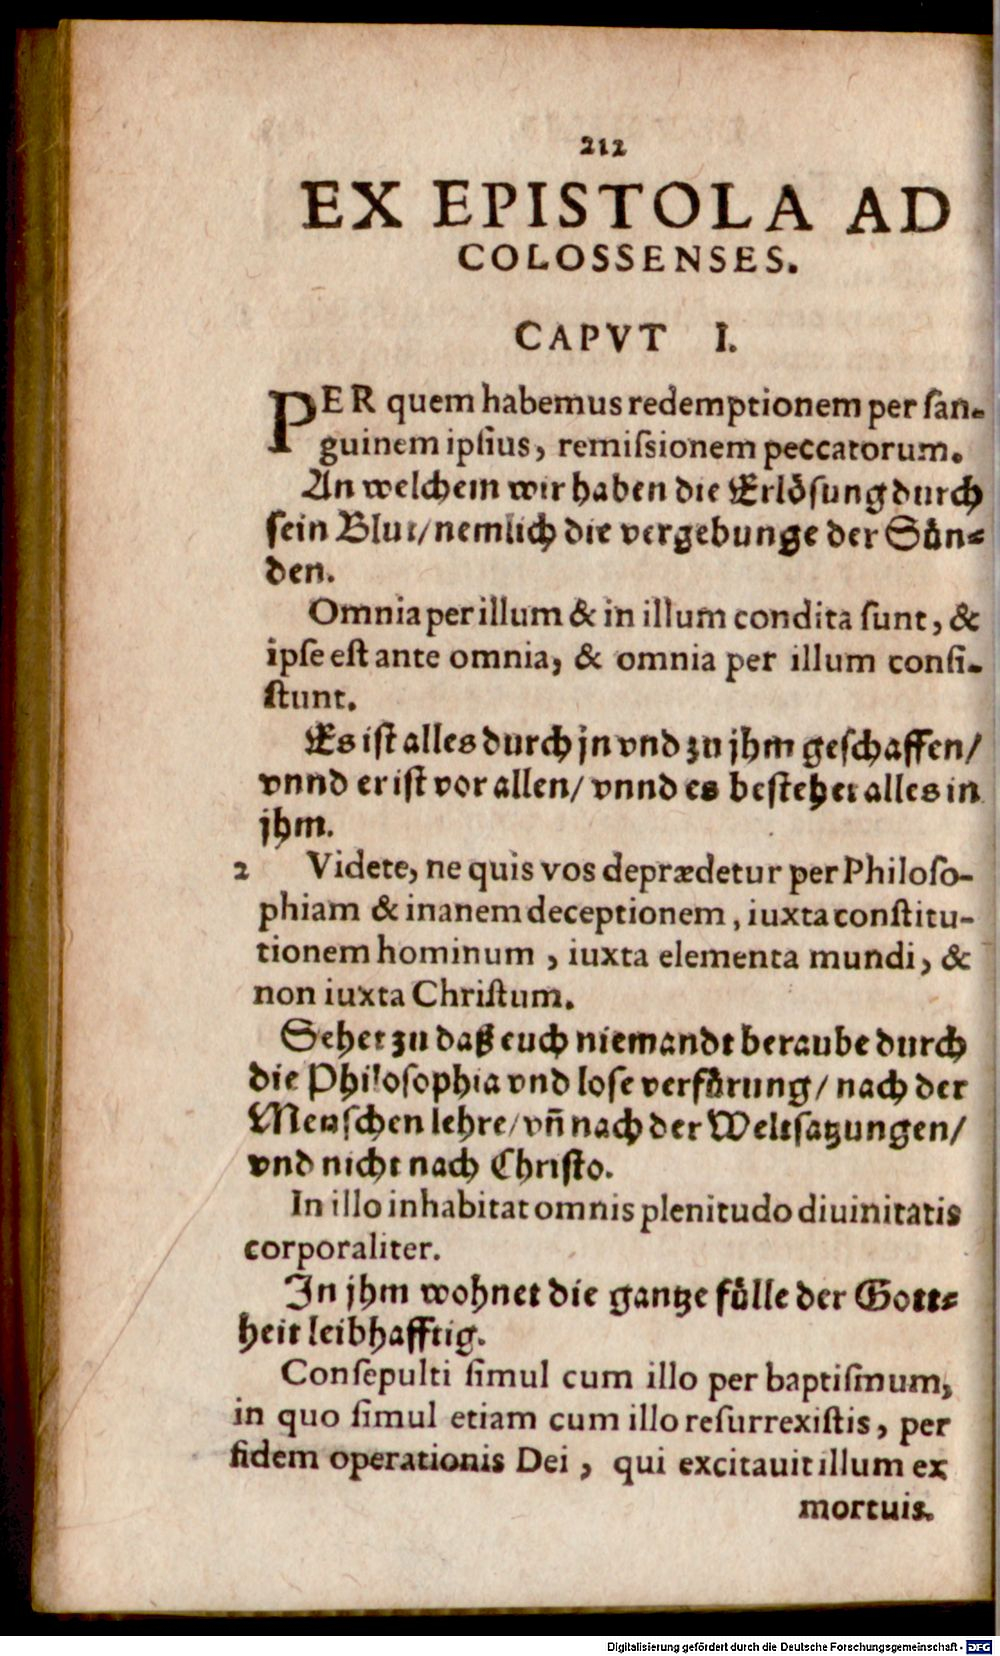 212
EX EPISTOLA AD
COLOSSENSES.
CAPVT I.
PER quem habemus redemptionem per ſan-
guinem ipſius, remiſsionem peccatorum.
An welchem wir haben die Erlöſung durch
ſein Blut/ nemlich die vergebunge der Sün-
den.
Omnia per illum & in illum condita ſunt, &
ipſe eſt ante omnia, & omnia per illum conſi-
ſtunt.
Es iſt alles durch jn vnd zu jhm geſchaffen/
vnnd er iſt vor allen/ vnnd es beſtehet alles in
jhm.
2 Videte, ne quis vos deprædetur per Philoſo-
phiam & inanem deceptionem, iuxta conſtitu-
tionem hominum , iuxta elementa mundi, &
non iuxta Chriſtum.
Sehet zu daß euch niemandt beraube durch
die Philoſophia vnd loſe verfürung/ nach der
Menſchen lehre/ vñ nach der Weltſatzungen/
vnd nicht nach Chriſto.
In illo inhabitat omnis plenitudo diuinitatis
corporaliter.
In jhm wohnet die gantze fülle der Gott-
heit leibhafftig.
Conſepulti ſimul cum illo per baptiſmum,
in quo ſimul etiam cum illo reſurrexiſtis, per
fidem operationis Dei , qui excitauit illum ex
mortuis.
Digitalisierung gefördert durch die Deutsche Forschungsgemeinschaft - DFG